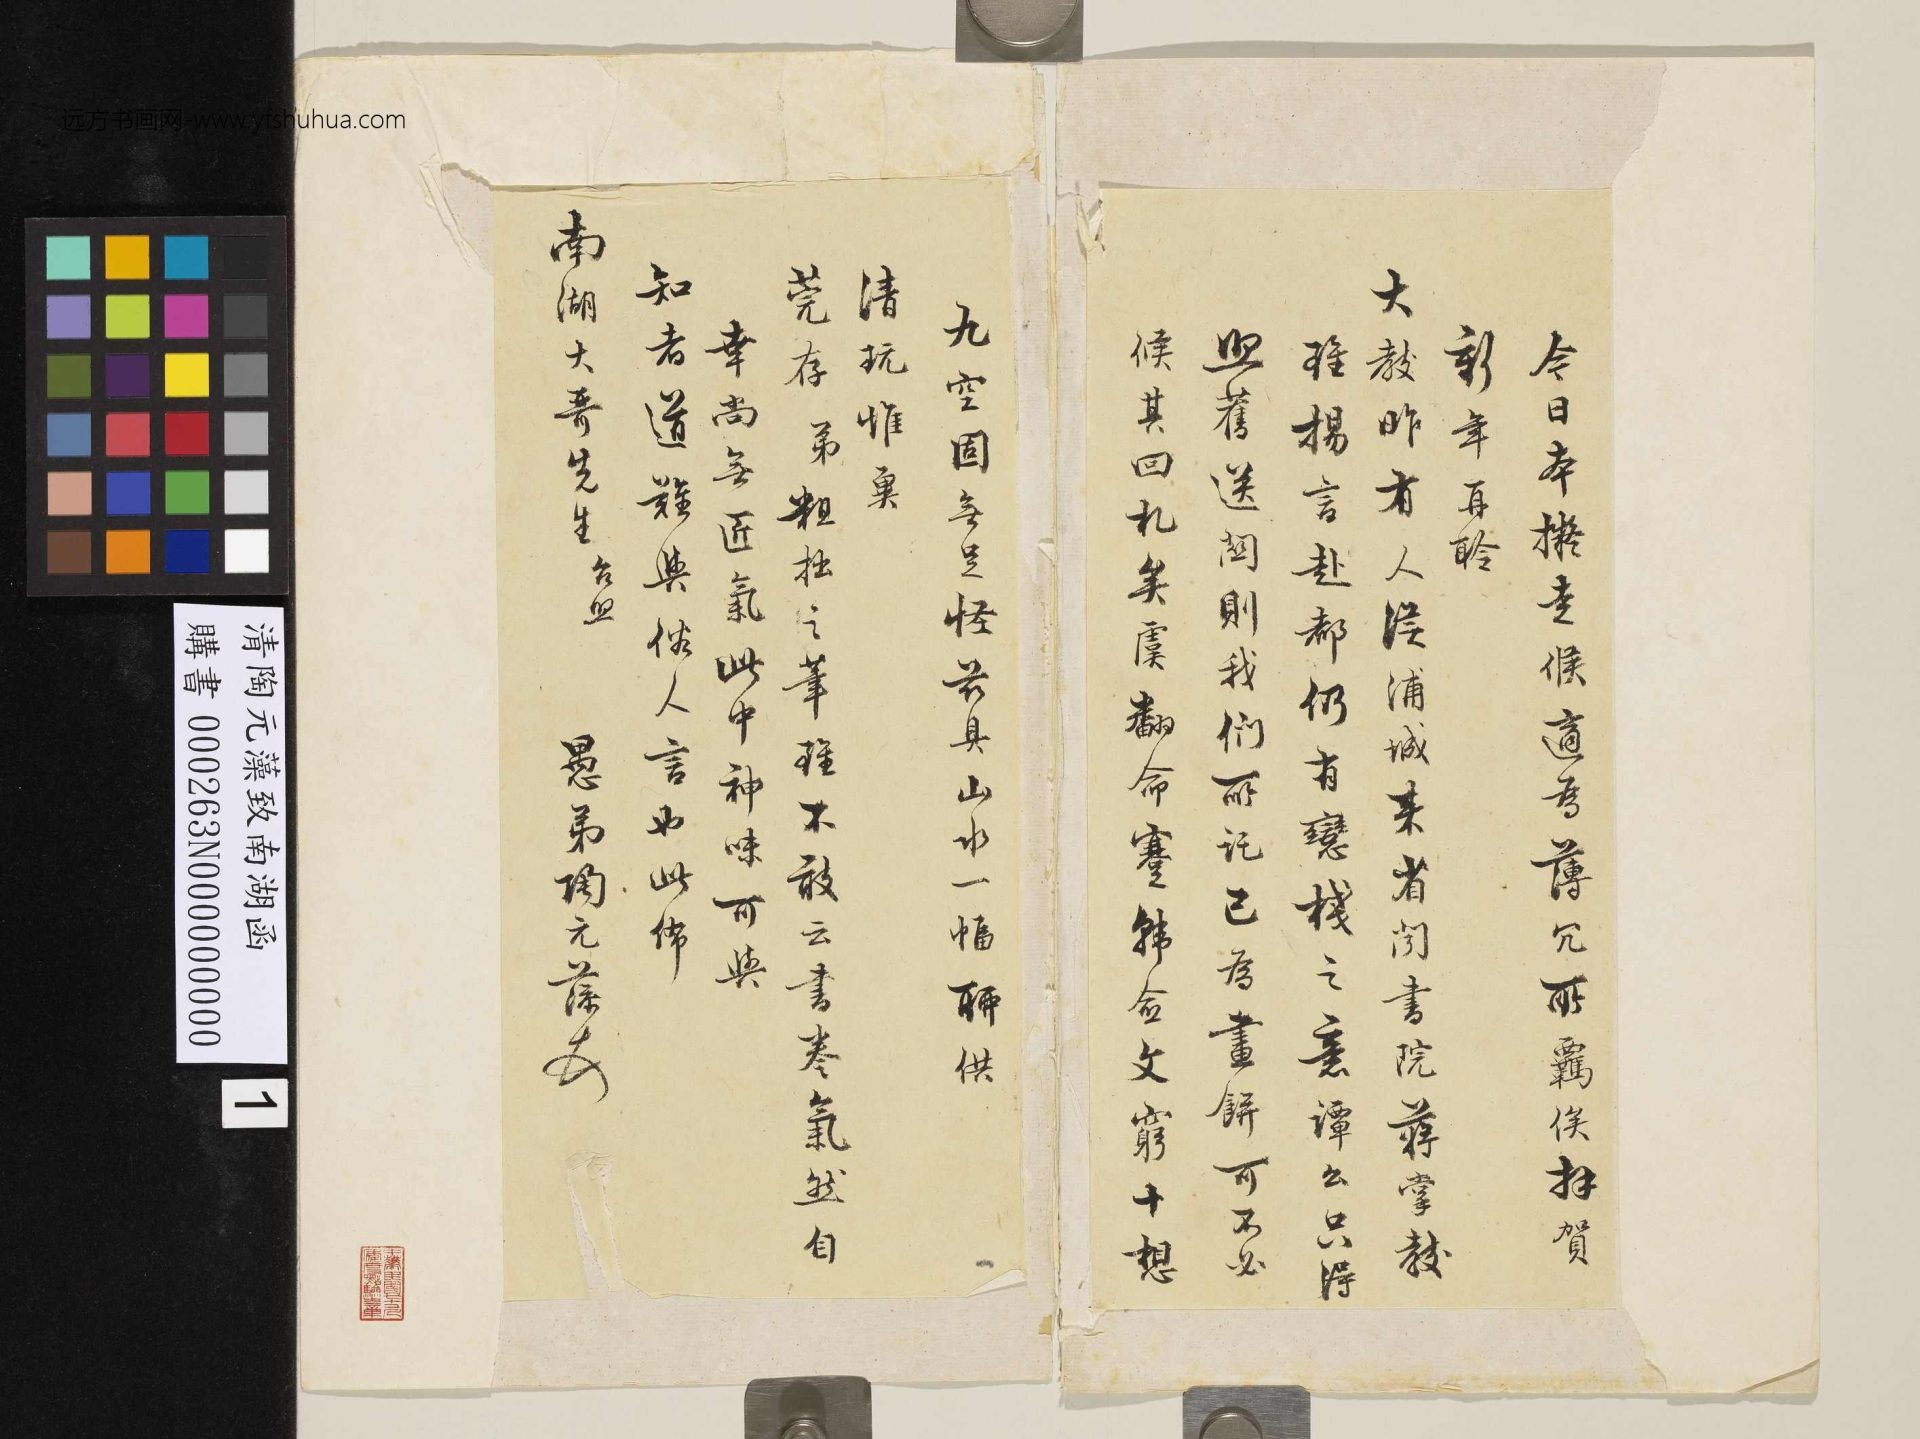 今日本擬走候適為薄冗所羈俟拜賀
新年再聆
大教昨有人從浦城來省聞書院蔣掌教
雖揚言赴都仍有戀棧之意譚公只得
照舊送關則我們所託已為畫餅可不必
候其回札矣虞翻命蹇韓愈文窮十想
九空固無足怪茲具山水一幅聊供
清玩惟冀
莞存弟粗拙之筆雖不敢云書卷氣然自
幸尚無匠氣此中神味可與
知者道難與俗人言也此佈
南湖大哥先生台照
愚弟陶元藻
清陶元藻致南湖函
購書 000263N000000000
1
远方书画网-www.yfshuhua.com